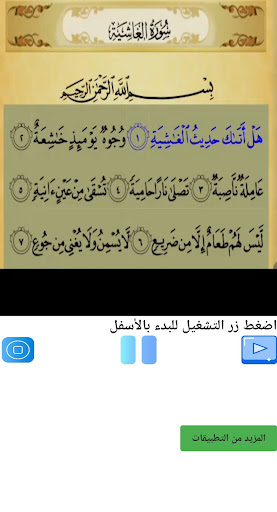 سُورَةُ الغَاشِيَةِ
بِسْمِ اللَّهِ الرَّحْمَٰنِ الرَّحِيمِ
هَلْ أَتَىٰكَ حَدِيثُ ٱلْغَٰشِيَةِ ١ وُجُوهٌ يَوْمَئِذٍ خَٰشِعَةٌ ٢
عَامِلَةٌ نَّاصِبَةٌ ٣ تَصْلَىٰ نَارًا حَامِيَةً ٤ تُسْقَىٰ مِنْ عَيْنٍ ءَانِيَةٍ ٥
لَّيْسَ لَهُمْ طَعَامٌ إِلَّا مِن ضَرِيعٍ ٦ لَّا يُسْمِنُ وَلَا يُغْنِى مِن جُوعٍ ٧
اضغط زر التشغيل للبدء بالأسفل
المزيد من التطبيقات